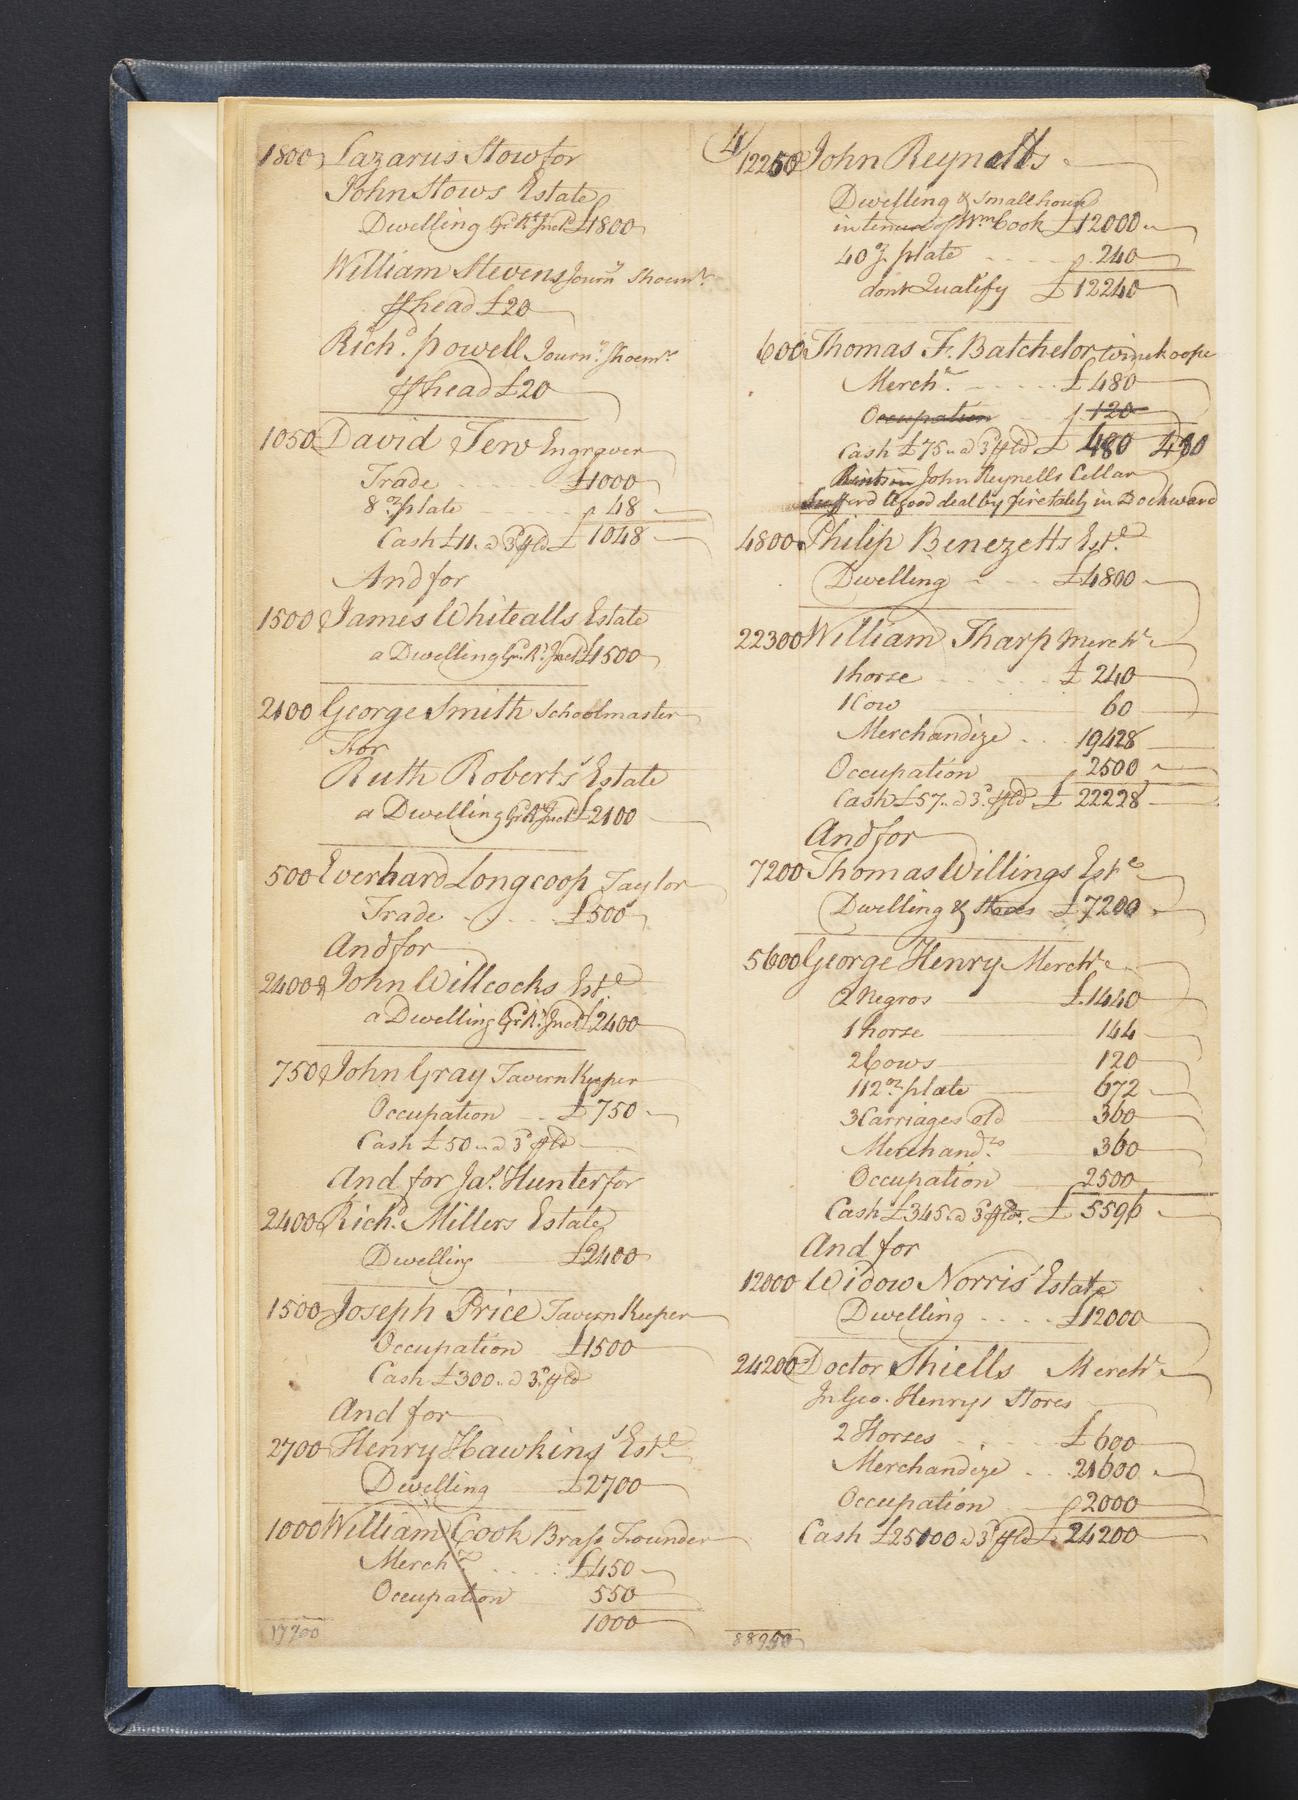 4
1800 Lazarus Stow for
John Stows Estate
Dwelling Gr. Rt Incd £1800
William Stevens Journy Shoemr
⅌ head £20
Richd. Powell Journy. Shoemr.
⅌ head £20
1050 David Tew Engraver
Trade £1000
8 oz plate 48
Cash £11.. @ 3s ⅌ ld £ 1048
And for
1500 James Whitealls Estate
a Dwelling Gr. Rt. Incd £1500
2100 George Smith Schoolmaster
For
Ruth Roberts' Estate
a Dwelling Gr. Rt Incd £2100
500 Everhard Longcoop Taylor
Trade £500
And for
2400 John Willcocks Este
a Dwelling Gr. Rt. Incd £2400
750 John Gray Tavern Keeper
Occupation £750
Cash £50.. @ 3s ⅌ ld
And for Jas. Hunter for
2400 Richd. Millers Estate
Dwelling £2400
1500 Joseph Price Tavern Keeper
Occupation £1500
Cash £300.. @ 3s. ⅌ ld
And for
2700 Henry Hawkins' Este
Dwelling £2700
1000 William Cook Brass Founder
Merchze. £450
Occupation 550
1000
17700
12250 John Reynells
Dwelling & Small house
in tenure of Wm Cook £12000
40 oz plate 240
dont Qualify £12240
600 Thomas F. Batchelor Winekooper
Merchze. £480
Occupation 120
Cash £75.. @ 3s ⅌ ld £ 480 480
Rents in John Reynells Cellar
Sufferd a good deal by fire lately in Dockward
4800 Philip Benezetts Este.
Dwelling £4800
22300 William Sharp Mercht
1 horse £240
1 Cow 60
Merchandize 19428
Occupation 2500
Cash £57.. @ 3s. ⅌ ld £ 22228
And for
7200 Thomas Willings Este
Dwelling & Stores £7200
5600 George Henry Mercht
2 Negros £1440
1 horse 144
2 Cows 120
112 oz plate 672
3 Carriages old 360
Merchandze 360
Occupation 2500
Cash £345.. @ 3s ⅌ ld. £ 5596
And for
12000 Widow Norris' Estate
Dwelling £12000
24200 Doctor Shiells Mercht
In Geo. Henrys Stores
2 Horses £600
Merchandize 21600
Occupation 2000
Cash £25100 @ 3s ⅌ ld £ 24200
88950